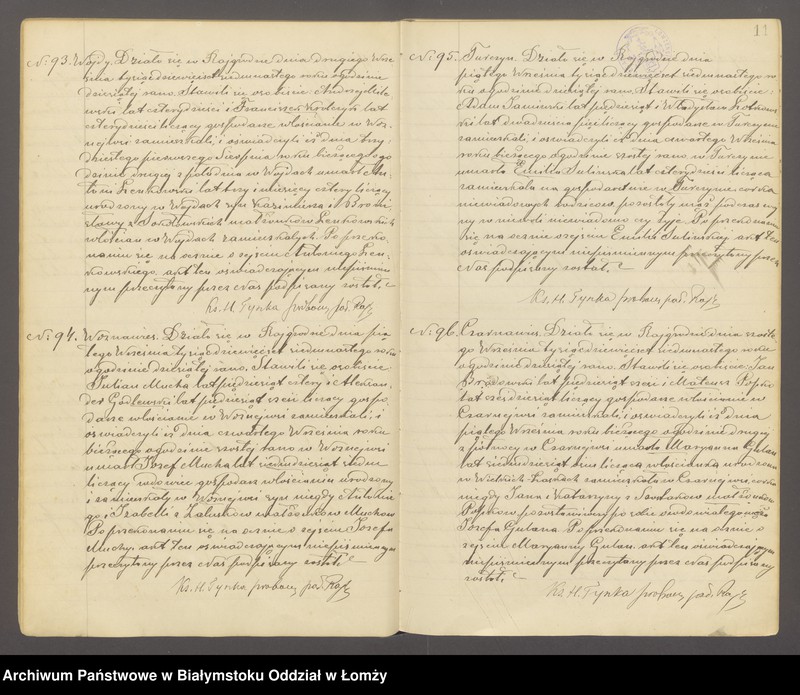 11
№ 93. Wojdy. Działo się w Rajgrodzie dnia drugiego Wrze-
śnia tysiąc dziewięćset siedmnastego roku o godzinie
dziesiątej rano. Stawili się osobiście Andrzej
lat czterdzieści i Franciszek lat
czterdzieści liczący gospodarze włościanie w Woz-
nejwsi zamieszkali, i oświadczyli iż dnia trzy-
dziestego pierwszego Sierpnia roku bieżącego o go-
dzinie drugiej z południa w Wojdach umarł An-
toni Lenkowski lat trzy i miesięcy cztery liczący
urodzony w Wojdach syn Kazimierza i Broni-
sławy z małżonków Lenkowskich
włościan w Wojdach zamieszkałych. Po przeko-
naniu się na ocznie o zejściu Antoniego Len-
kowskiego, akt ten oświadczającym niepiśmien-
nym przeczytany przez Nas podpisany został.
Ks. H. Tynka proboszcz par. Rajg.
№ 94. Woznawieś. Działo się w Rajgrodzie dnia pią-
tego Września tysiąc dziewięćset siedmnastego roku
o godzinie dziesiątej rano. Stawili się osobiście
Julian Mucha lat pięćdziesiąt cztery i Aleksan-
der Godlewski lat pięćdziesiąt liczący gospo-
darze włościanie w Woznejwsi zamieszkali, i
oświadczyli iż dnia czwartego Września roku
bieżącego o godzinie szóstej rano w Woznejwsi
umarł Józef Mucha lat siedmdziesiąt siedm
liczący wdowiec gospodarz włościanin urodzony
i zamieszkały w Woznejwsi syn niegdy Antonie-
go i Izabelli z małżonków Muchów
Po przekonaniu się na ocznie o zejściu Józefa
Muchy, akt ten oświadczającym niepiśmiennym
przeczytany przez Nas podpisany został.
Ks. H. Tynka proboszcz par. Rajg
№ 95. Turczyn. Działo się w Rajgrodzie dnia
piątego Września tysiąc dziewięćset siedmnastego ro-
ku o godzinie dziesiątej rano. Stawili się osobiście
Adam lat pięćdziesiąt i Władysław
lat dwadzieścia pięć liczący gospodarze w Turczynie
zamieszkali, i oświadczyli iż dnia czwartego Września
roku bieżącego o godzinie szóstej rano w Turczynie
umarła Emilia Sulińska lat czterdzieści licząca
zamieszkała na gospodarstwie w Turczynie, córka
niewiadomych rodziców, pozostały mąż podczas woj-
ny w niewoli niewiadomo czy żyje. Po przekonaniu
się na ocznie o zejściu Emilii Sulińskiej, akt ten
oświadczającym niepiśmiennym przeczytany przez
Nas podpisany został.
Ks. H. Tynka proboszcz par. Rajg.
№ 96. Czarnawieś. Działo się w Rajgrodzie dnia szóste-
go Września tysiąc dziewięćset siedmnastego roku
o godzinie dziesiątej rano. Stawili się osobiście Jan
Brodowski lat pięćdziesiąt i Mateusz Popko
lat sześćdziesiąt liczący gospodarze włościanie w
Czarnejwsi zamieszkali, i oświadczyli iż dnia
piątego Września roku bieżącego o godzinie drugiej
z północy w Czarnejwsi umarła Maryanna Gutan
lat siedmdziesiąt licząca włościanka urodzona
w zamieszkała w Czarnejwsi, córka
niegdy Jana i Katarzyny z małżonków
Popków pozostawiwszy po sobie owdowiałego męża
Józefa Gutana. Po przekonaniu się na ocznie o
zejściu Maryanny Gutan, akt ten oświadczającym
niepiśmiennym przeczytany przez Nas podpisany
został.
Ks. H. Tynka proboszcz par. Rajg
Archiwum Państwowe w Białymstoku Oddział w Łomży